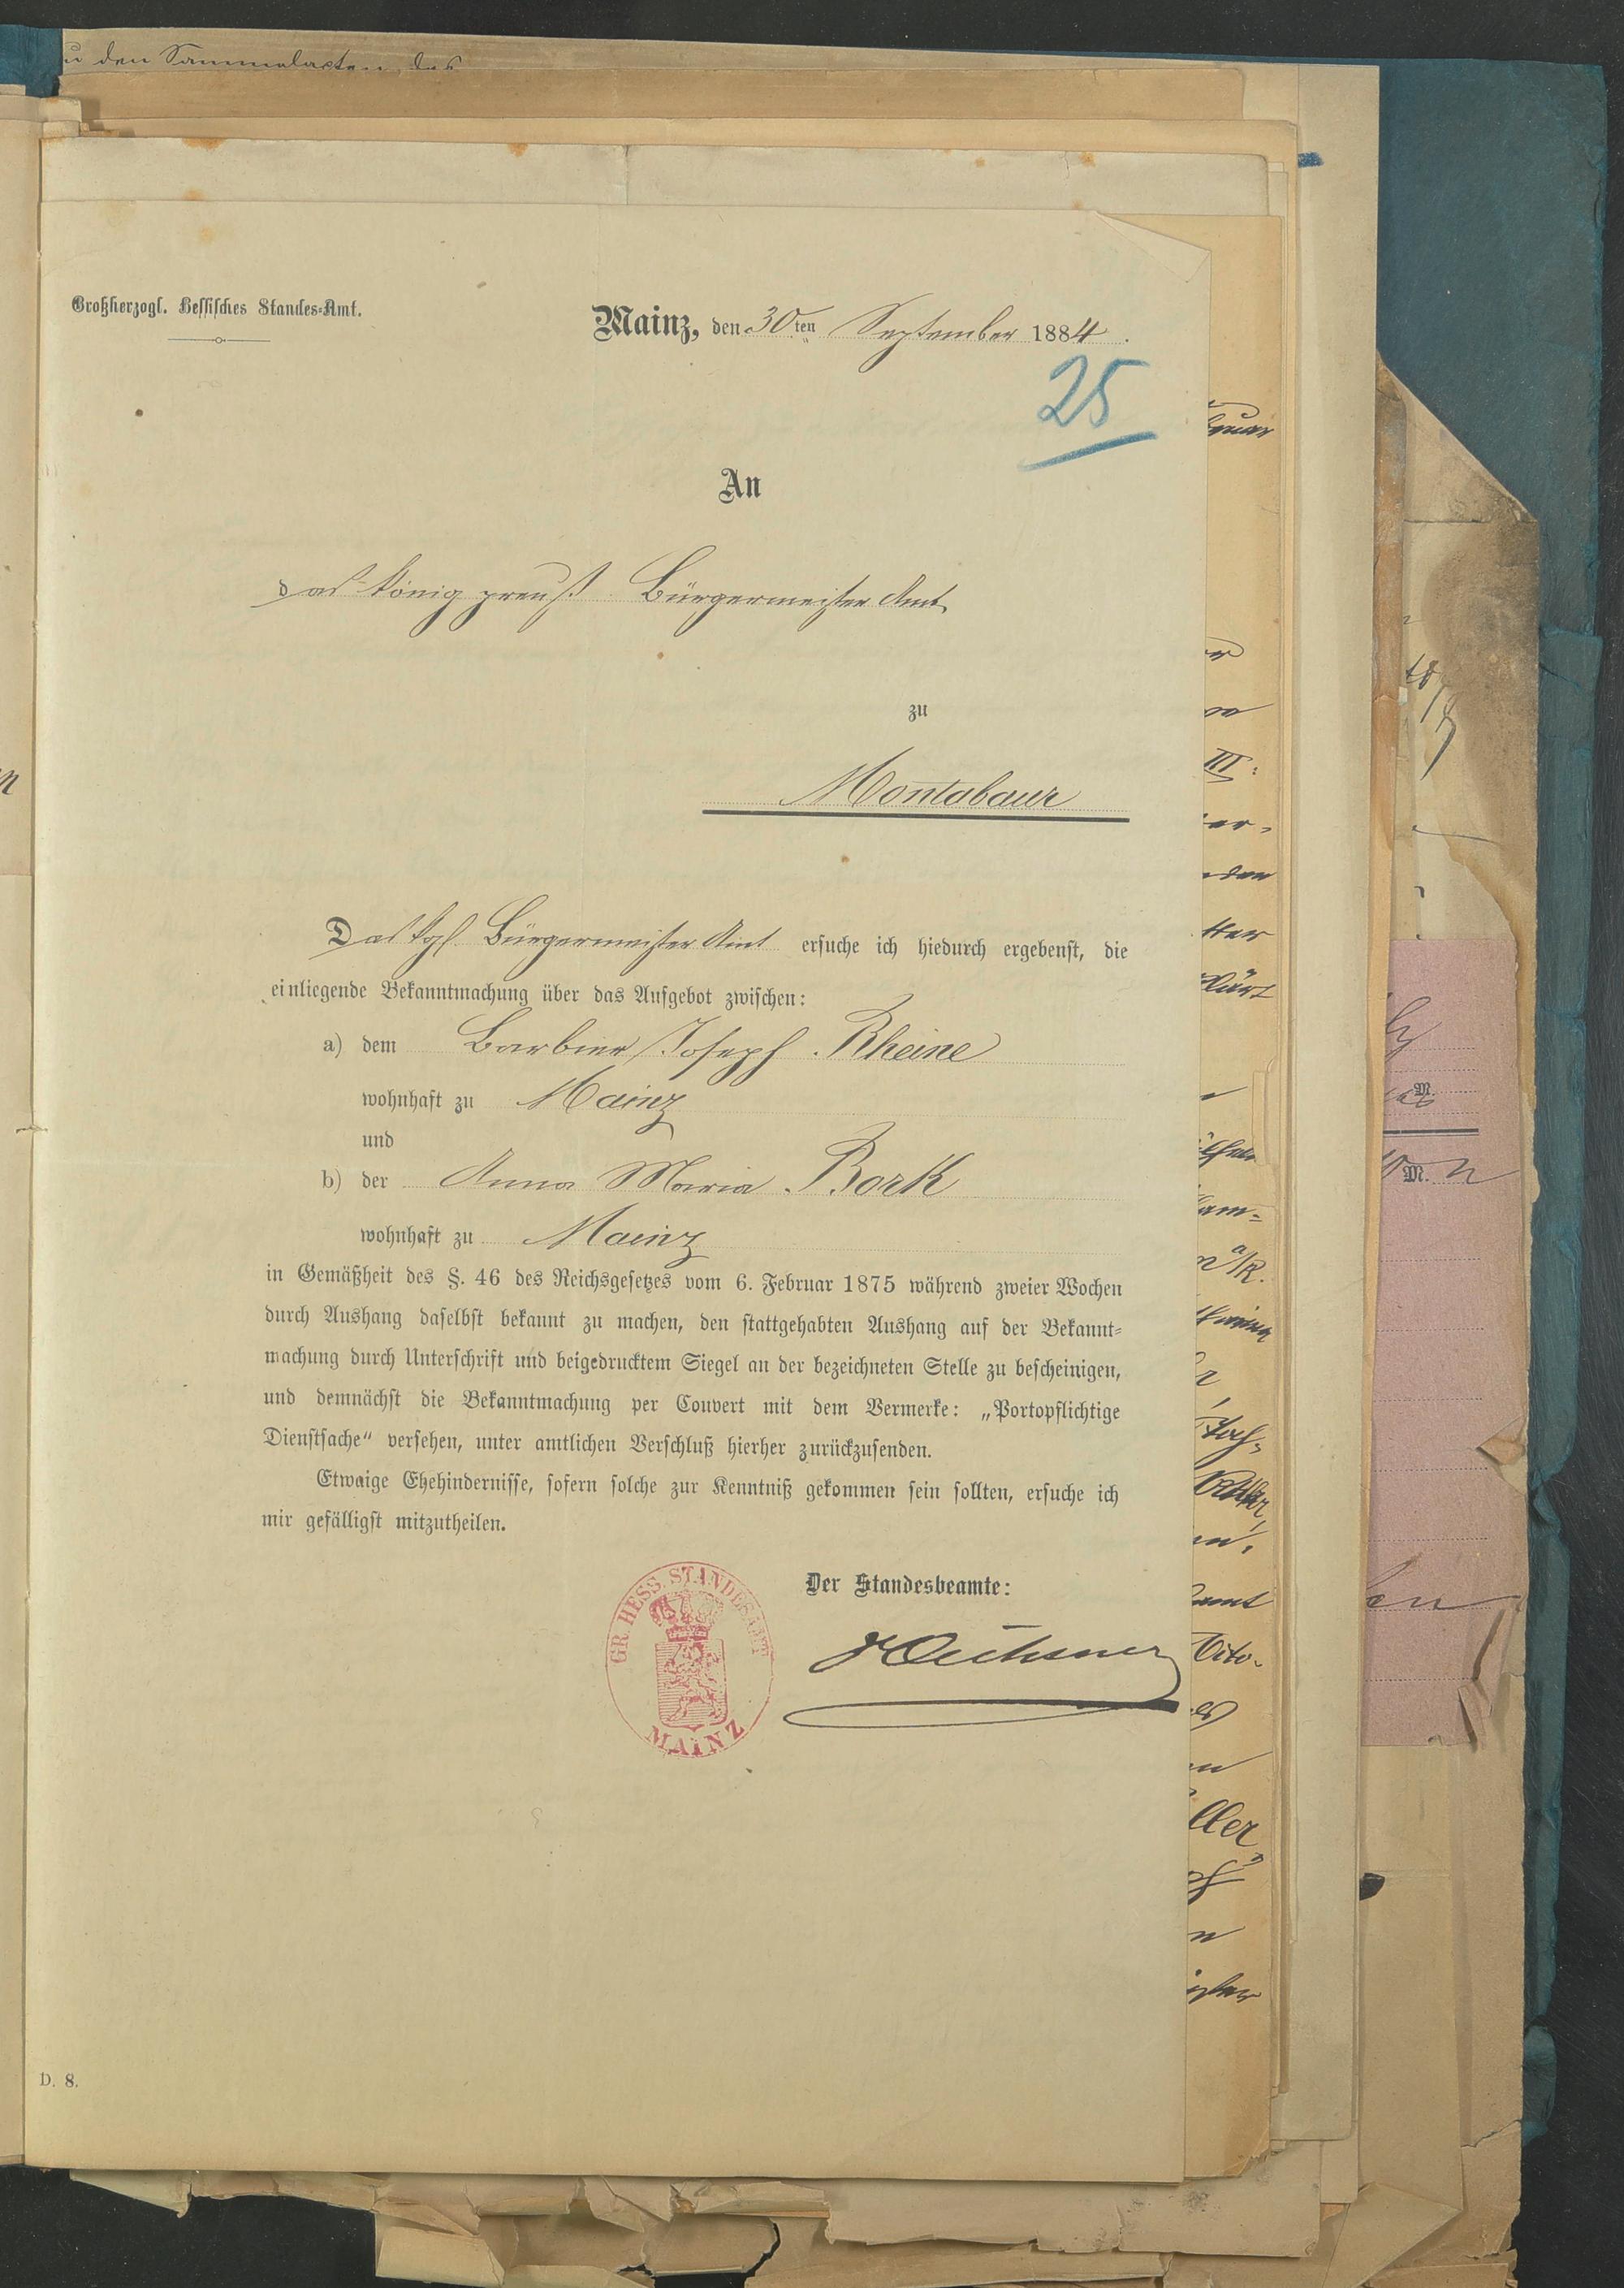 den Sammelacten des
Großherzogl. Hessisches Standes-Amt.
Mainz, den 30ten September 1884.
25
An
das König preuß. Bürgermeister Amt
zu
Montabaur
Das Kgl. Bürgermeister Amt ersuche ich hiedurch ergebenst, die
einliegende Bekanntmachung über das Aufgebot zwischen:
a) dem Barbier Joseph Rheine
wohnhaft zu Mainz
und
b) der Anna Maria Bork
wohnhaft zu Mainz
in Gemäßheit des §. 46 des Reichsgesetzes vom 6. Februar 1875 während zweier Wochen
durch Aushang daselbst bekannt zu machen, den stattgehabten Aushang auf der Bekannt-
machung durch Unterschrift und beigedrucktem Siegel an der bezeichneten Stelle zu bescheinigen,
und demnächst die Bekanntmachung per Couvert mit dem Vermerke: „Portopflichtige
Dienstsache“ versehen, unter amtlichen Verschluß hierher zurückzusenden.
Etwaige Ehehindernisse, sofern solche zur Kenntniß gekommen sein sollten, ersuche ich
mir gefälligst mitzutheilen.
Der Standesbeamte:
GR. HESS. STANDESAMT
MAINZ
D. 8.